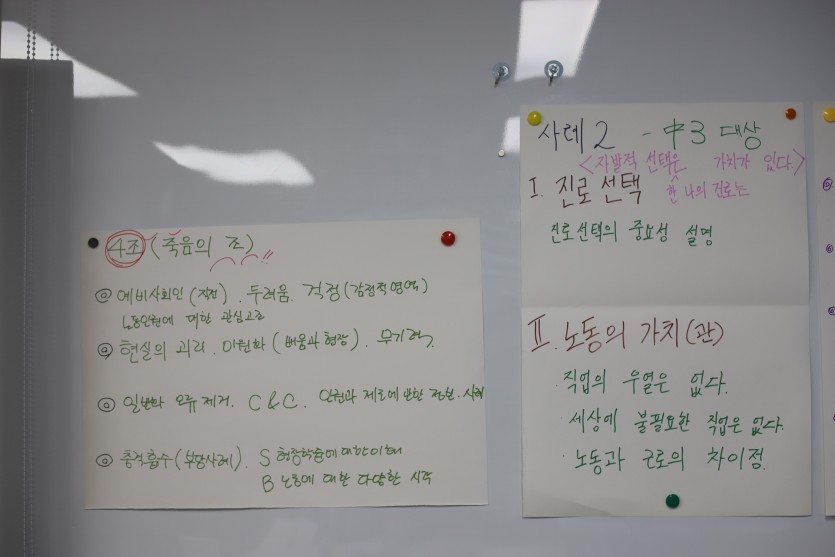 4조 (죽음의 조)!!
◎ 예비사회인 (직전). 두려움. 걱정 (감정적영역)
노동인권에 대한 관심고조
◎ 현실의 괴리. 이원화 (배움과 현장). 무기력.
◎ 일반화 오류 제거. C&C. 인권과 제도에 대한 정보. 사례
◎ 충격흡수 (부당사례). S 현장학습에 대한 이해
B 노동에 대한 다양한 시각
사례 2 - 中3 대상
<자발적 선택은 가치가 있다.>
한 나의 진로는
I. 진로 선택
진로선택의 중요성 설명
II. 노동의 가치(관)
· 직업의 우열은 없다.
· 세상에 불필요한 직업은 없다.
· 노동과 근로의 차이점.